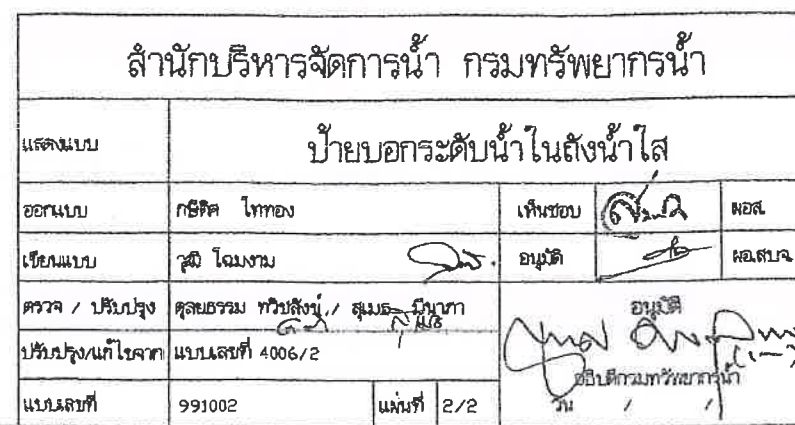 สำนักบริหารจัดการน้ำ กรมทรัพยากรน้ำ
แสดงแบบ ป้ายบอกระดับน้ำในถังน้ำใส
ออกแบบ กษิดิศ ไททอง เห็นชอบ ผอส.
เขียนแบบ วุฒิ โฉมงาม อนุมัติ ผอ.สบจ.
ตรวจ / ปรับปรุง ตุลยธรรม ทวิชสังข์ / สุเมธ มีนาภา อนุมัติ
ปรับปรุง/แก้ไขจาก แบบเลขที่ 4006/2
อธิบดีกรมทรัพยากรน้ำ
แบบเลขที่ 991002 แผ่นที่ 2/2 วัน / /